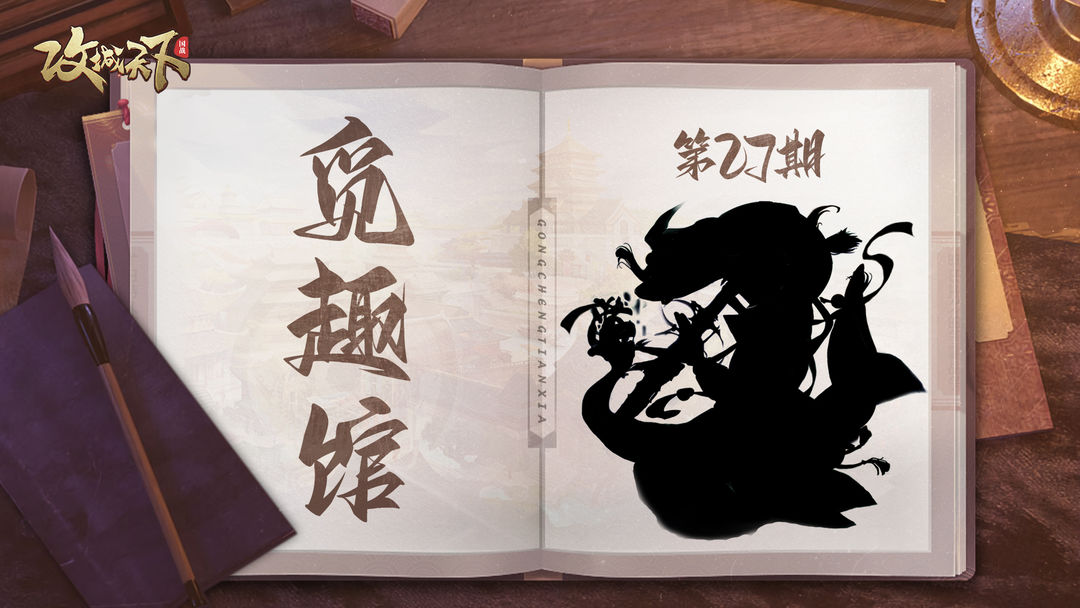 攻城天下
国战
觅趣馆
GONGCHENGTIANXIA
第27期